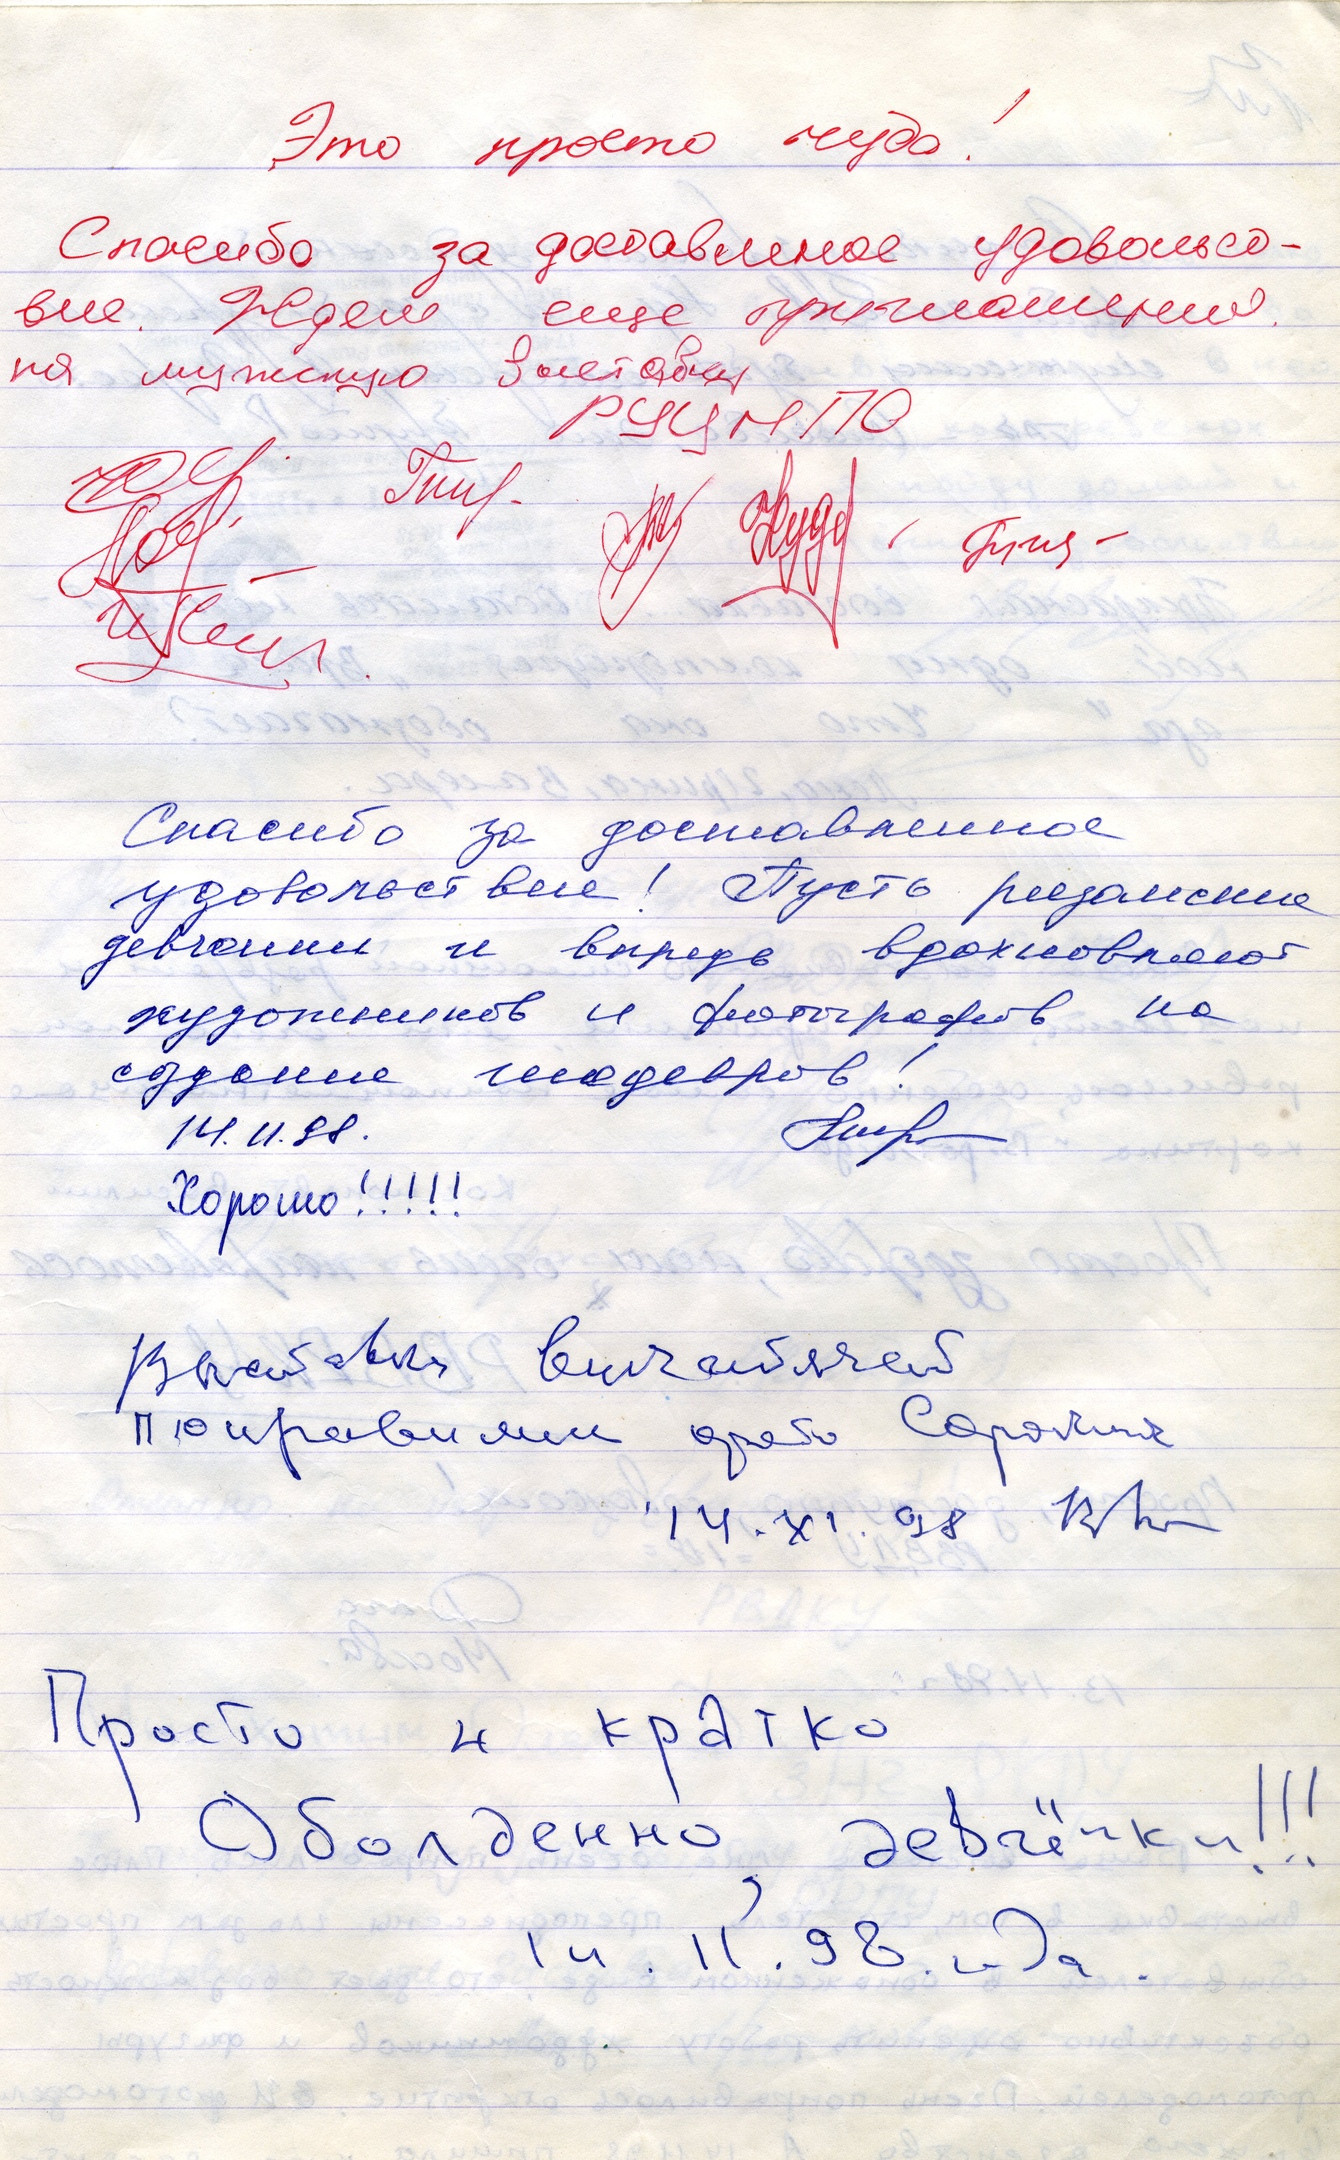 Это просто чудо!
Спасибо за доставленное удовольст-
вие. Ждем еще приглашения
на мужскую выставку
РУЦМПО
Спасибо за доставленное
удовольствие! Пусть рязанские
девчонки и впредь вдохновляют
художников и фотографов на
создание шедевров!
14.11.98.
Хорошо!!!!!
Выставка впечатляет
понравились фото
14.XI.98
Просто и кратко
Обалденно, девчёнки!!!
14.11.98.